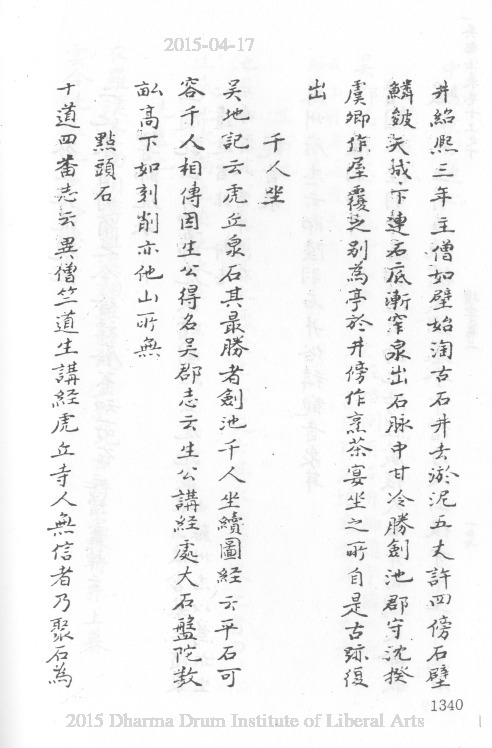 2015-04-17
井紹熙三年主僧如壁始淘古石井去淤泥五丈許四傍石壁
鱗皴天成下連石底漸窄泉出石脉中甘冷勝劍池郡守沈揆
虞卿作屋覆之别為亭於井傍作烹茶宴坐之所自是古跡復
出
千人坐
吴地記云虎丘泉石其最勝者劍池千人坐續圖經云平石可
容千人相傳因生公得名吴郡志云生公講経處大石盤陀數
畝高下如刻削亦他山所無
點頭石
十道四蕃志云異僧竺道生講経虎丘寺人無信者乃聚石為
1340
2015 Dharma Drum Institute of Liberal Arts